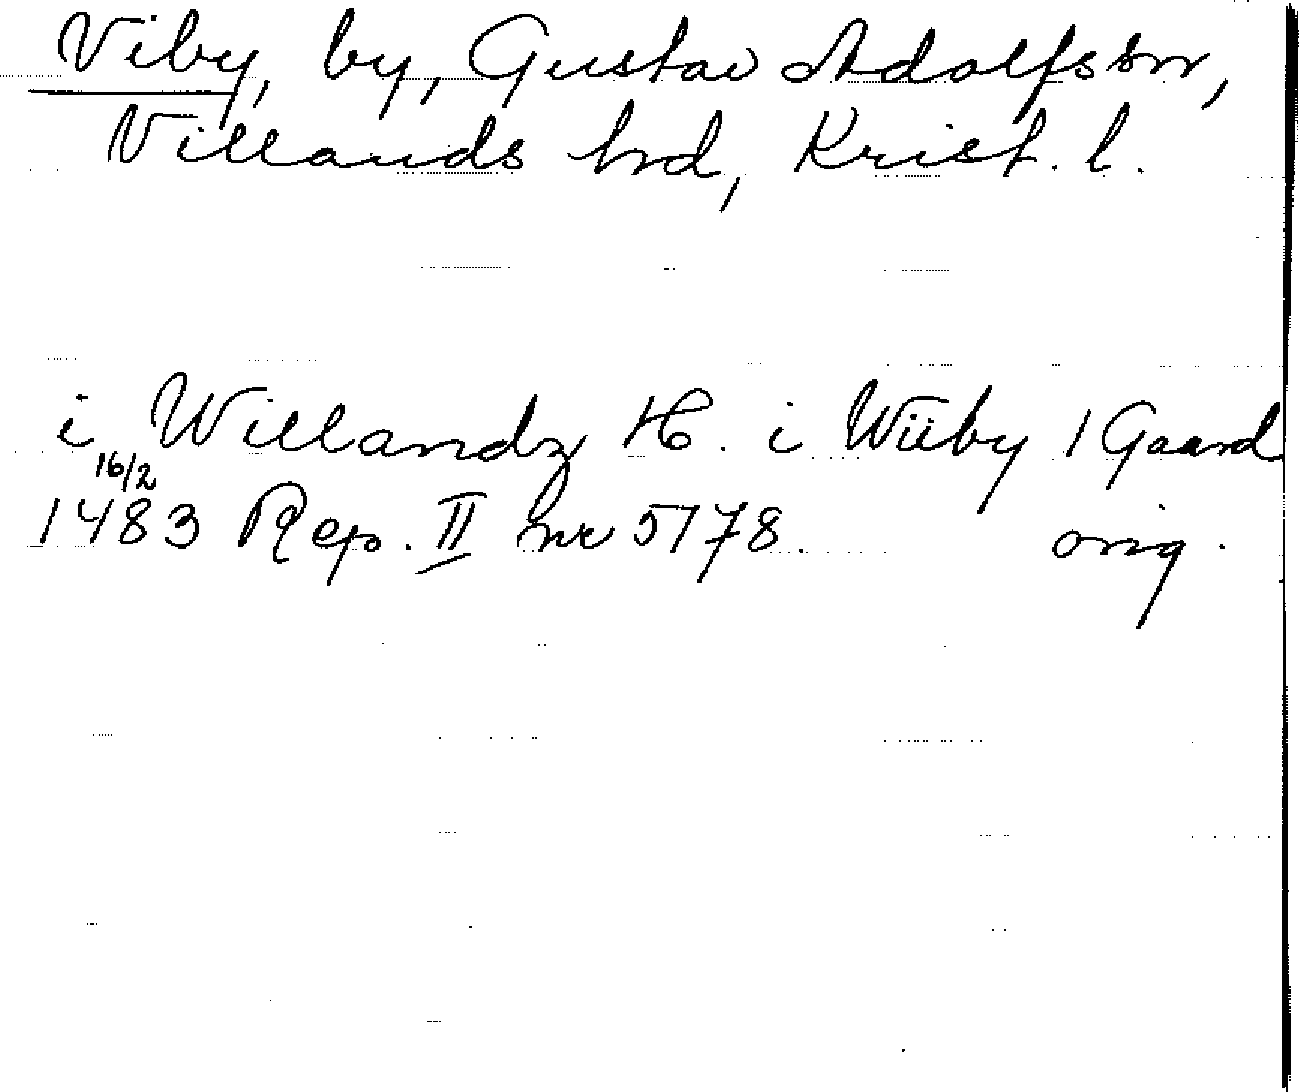 Viby, by, Gustav Adolfs sn,
Villands hd, Krist. l.
i Willandz H. i Wiiby 1 Gaard
16/2
1483 Rep. II nr 5178. orig.